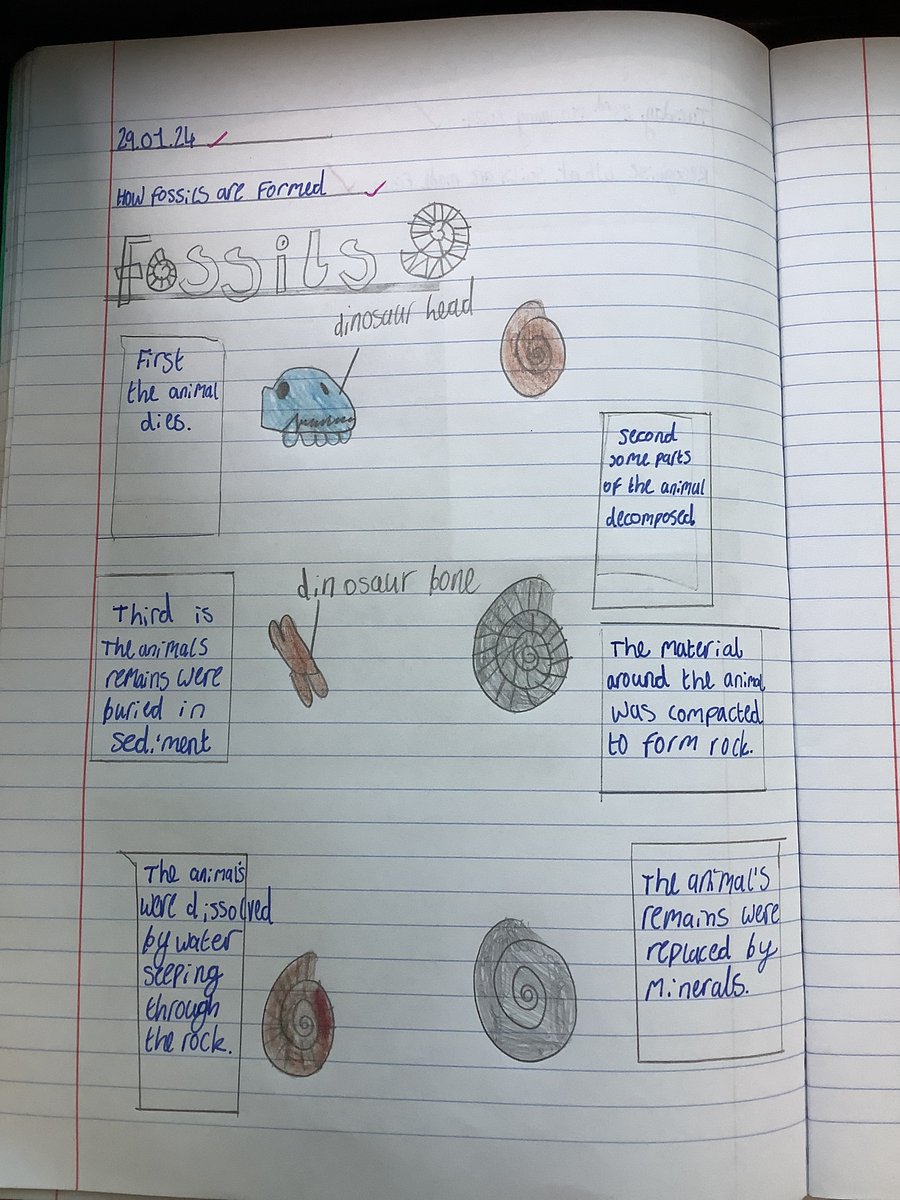 29.01.24
How fossils are formed
Fossils
dinosaur head
First
the animal
dies.
second
some parts
of the animal
decomposed
dinosaur bone
Third is
The animals
remains were
buried in
sediment
The material
around the animal
was compacted
to form rock.
The animals
were dissolved
by water
seeping
through
the rock.
The animal's
remains were
replaced by
minerals.